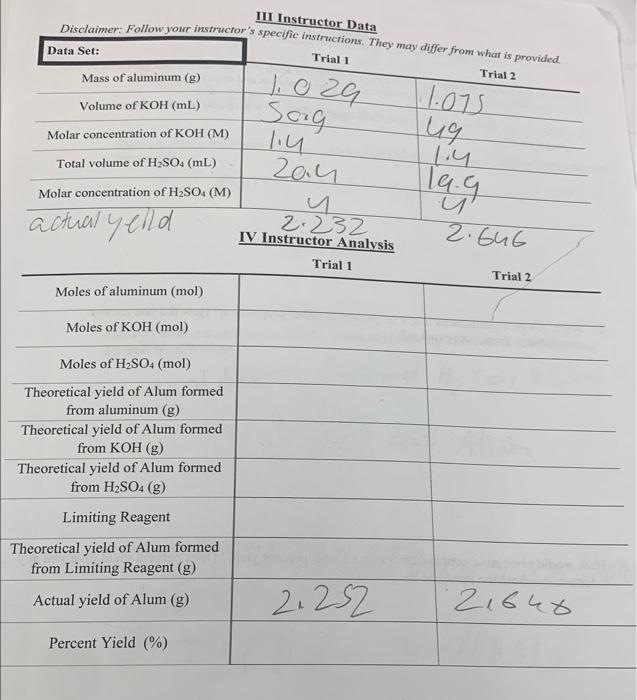 III Instructor Data
Disclaimer: Follow your instructor's specific instructions. They may differ from what is provided.
Data Set: Trial 1 Trial 2
Mass of aluminum (g) 1.029 1.075
Volume of KOH (mL) 49
Molar concentration of KOH (M) 1.4 1.4
Total volume of H₂SO₄ (mL) 20.4 19.9
Molar concentration of H₂SO₄ (M) 4 4
actual yelld 2.232 2.646
IV Instructor Analysis
Trial 1 Trial 2
Moles of aluminum (mol)
Moles of KOH (mol)
Moles of H₂SO₄ (mol)
Theoretical yield of Alum formed
from aluminum (g)
Theoretical yield of Alum formed
from KOH (g)
Theoretical yield of Alum formed
from H₂SO₄ (g)
Limiting Reagent
Theoretical yield of Alum formed
from Limiting Reagent (g)
Actual yield of Alum (g) 2.252
Percent Yield (%)